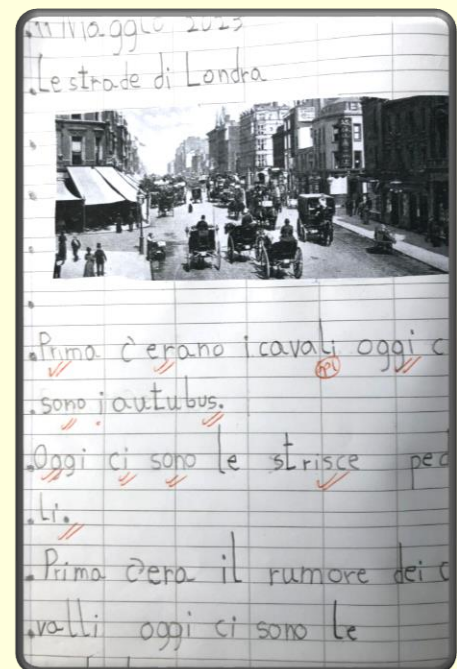 11 Maggio 2023
Le strade di Londra
Prima c'erano i cavali oggi c
sono i autubus.
Oggi ci sono le strisce ped
li.
Prima c'era il rumore dei c
valli oggi ci sono le